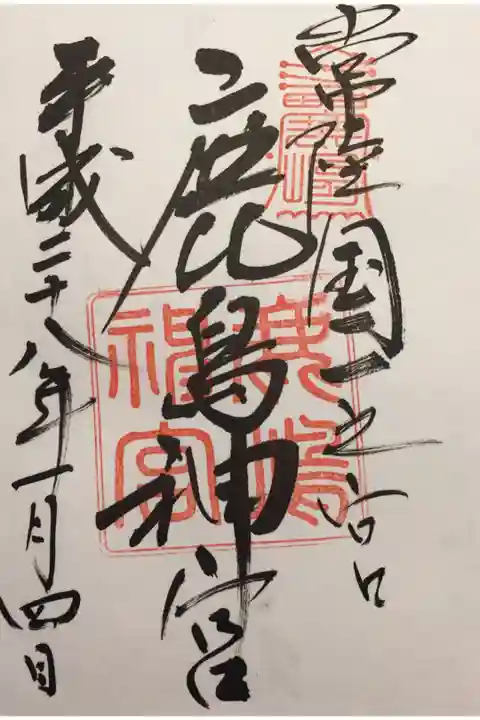 常陸国一之宮
鹿島神宮
平成二十八年一月四日
鹿嶋神宮